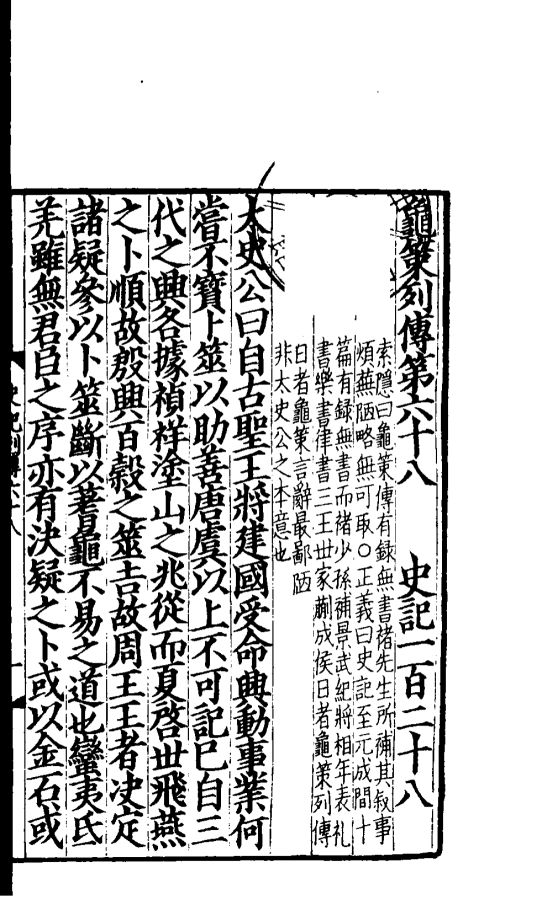 龜策列傳第六十八　史記一百二十八
索隱曰龜策傳有録無書褚先生所補其叙事
煩蕪陋略無可取○正義曰史記至元成間十
篇有録無書而褚少孫補景武紀將相年表礼
書樂書律書三王世家蒯成侯日者龜策列傳
日者龜策言辭最鄙陋
非太史公之本意也
太史公曰自古聖王將建國受命興動事業何
嘗不寶卜筮以助善唐虞以上不可記已自三
代之興各據楨祥塗山之兆從而夏啓世飛燕
之卜順故殷興百穀之筮吉故周王王者决定
諸疑參以卜筮斷以蓍龜不易之道也蠻夷氐
羌雖無君臣之序亦有决疑之卜或以金石或